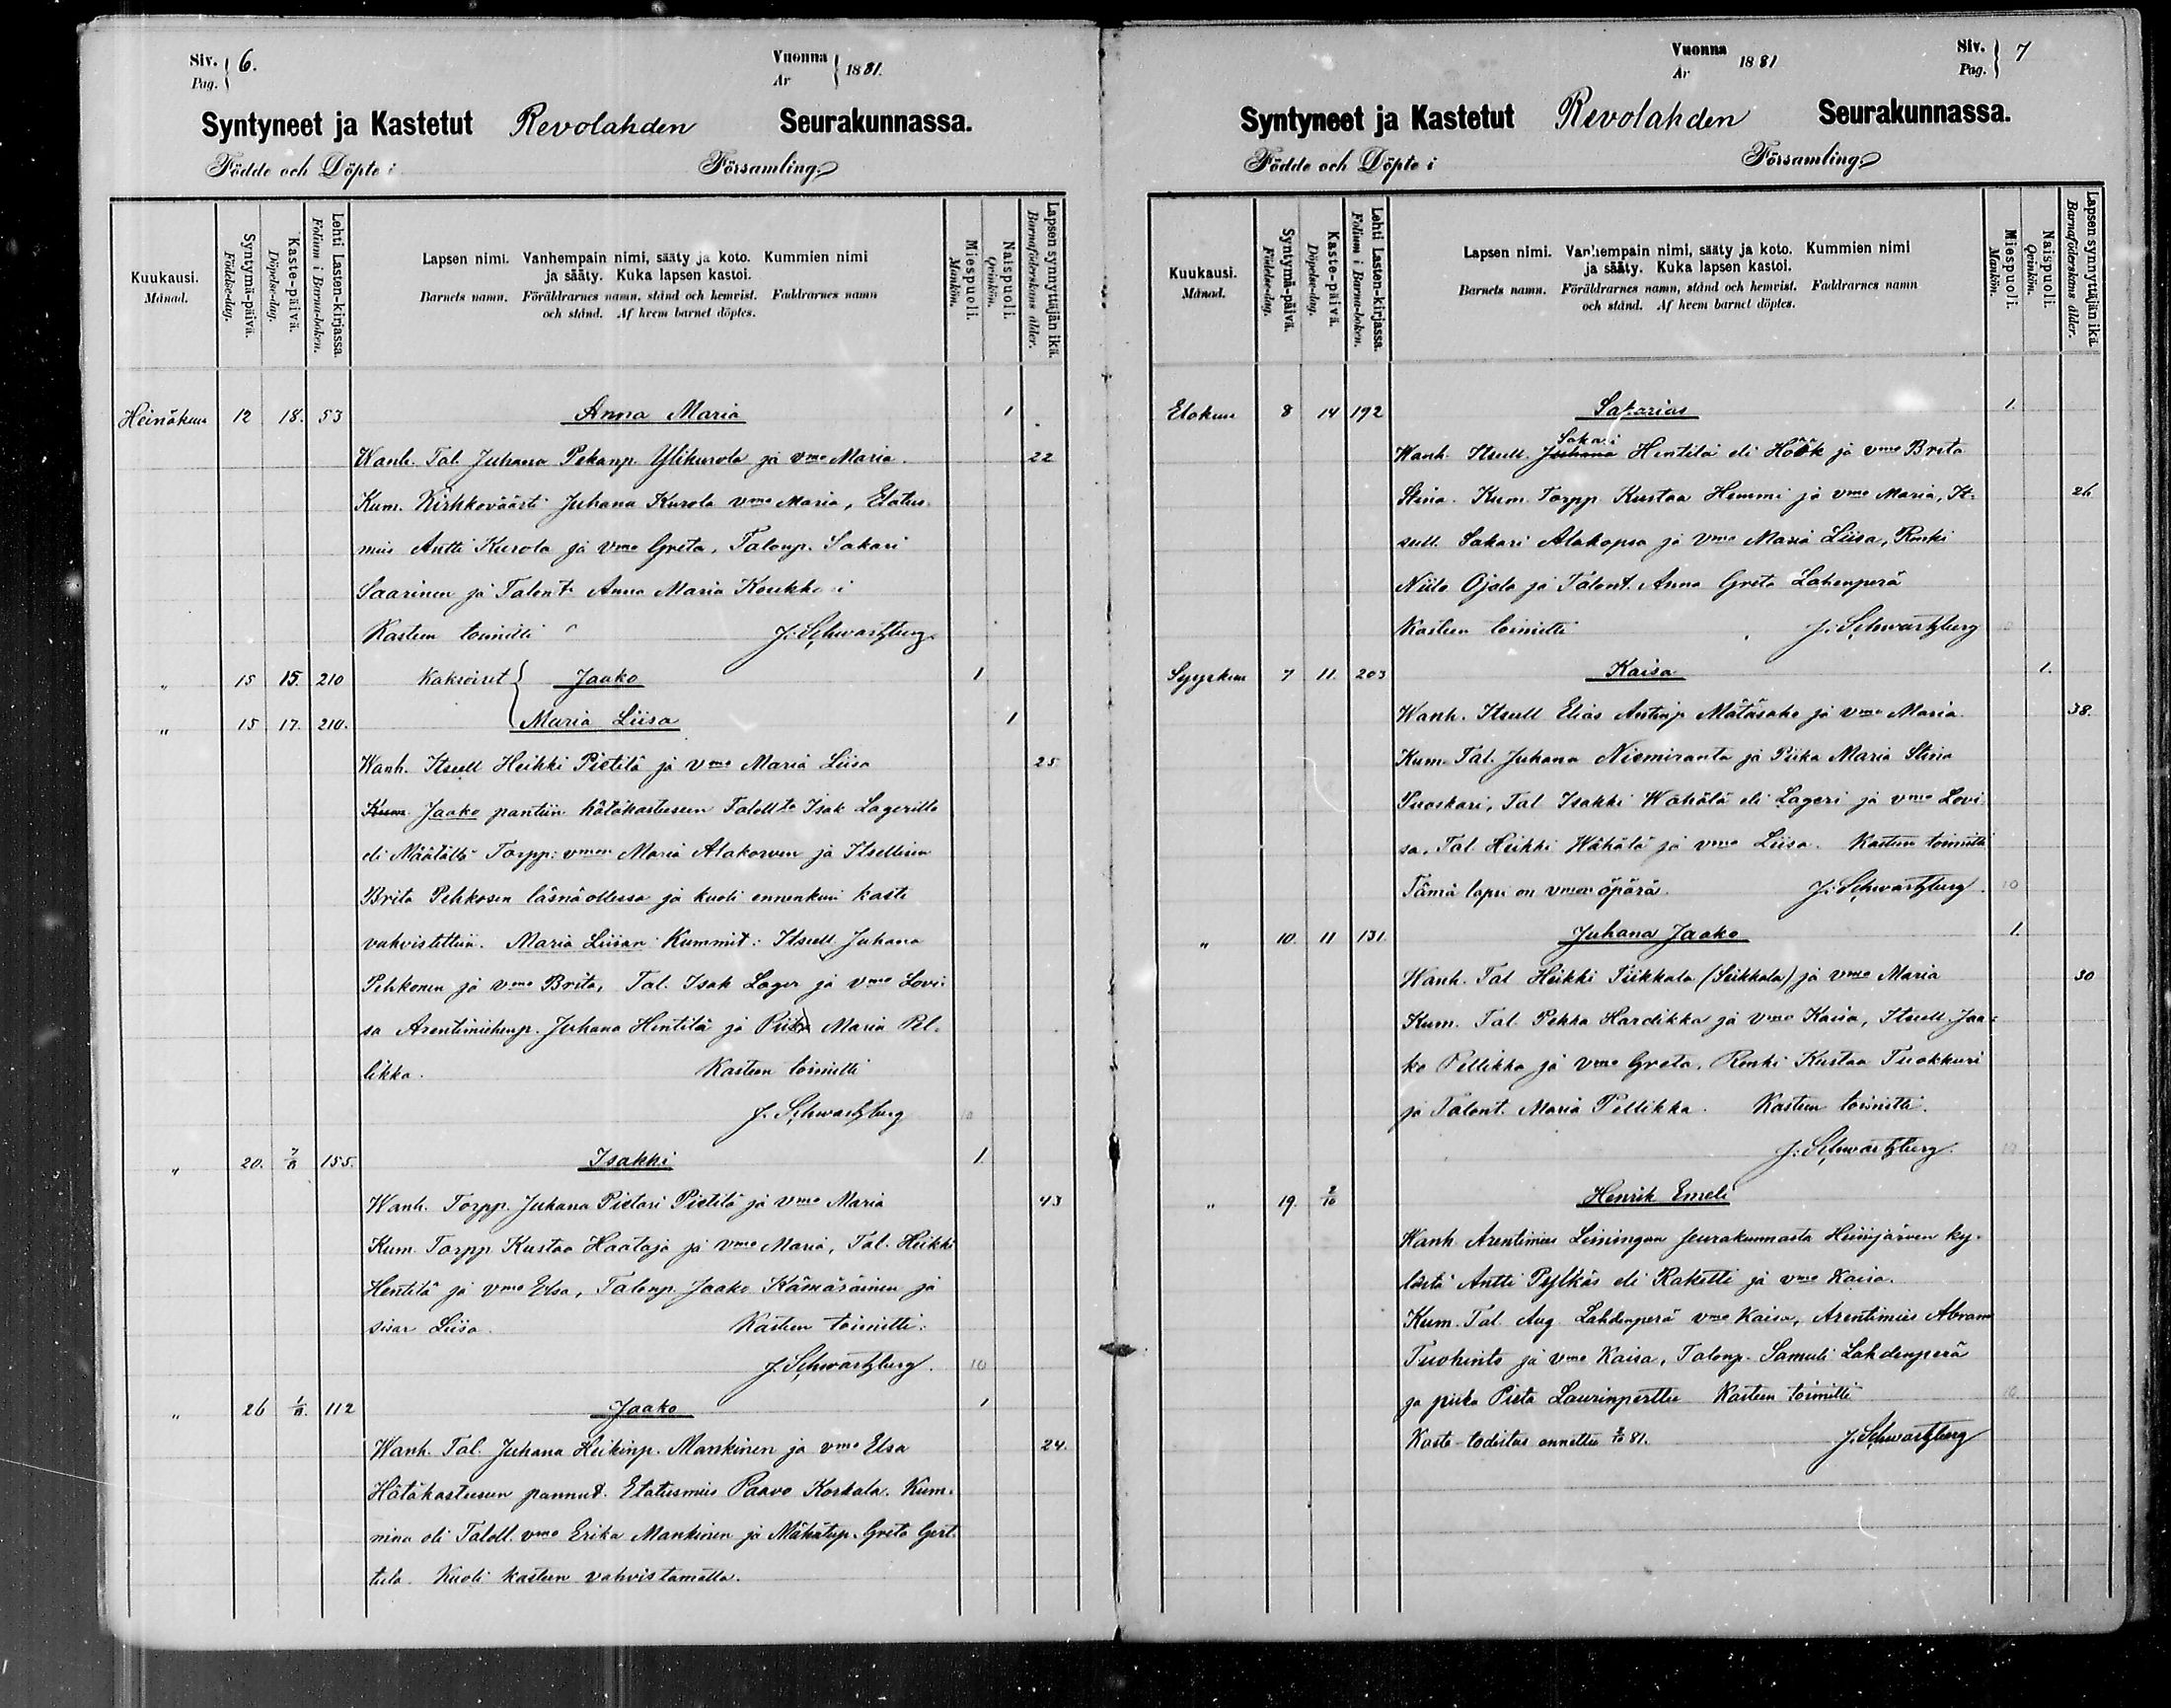 Siv. 6.
Pag.
Vuonna 1881.
År
Syntyneet ja Kastetut Revolahden Seurakunnassa.
Födde och Döpte i Församling.
Kuukausi.
Månad.
Syntymä-päivä.
Födelse-dag.
Kaste-päivä.
Döpelse-dag.
Lehti Lasten-kirjassa.
Folium i Barna-boken.
Lapsen nimi. Vanhempain nimi, sääty ja koto. Kummien nimi
ja sääty. Kuka lapsen kastoi.
Barnets namn. Föräldrarnes namn, stånd och hemvist. Faddrarnes namn
och stånd. Af hvem barnet döptes.
Miespuoli.
Mankön.
Naispuoli.
Qvinkön.
Lapsen synnyttäjän ikä.
Barnaföderskans ålder.
Heinäkuu 12 18. 53 Anna Maria 1
Wanh. Tal. Juhana Pekanp. Ylikurola ja vmo Maria. 22
Kum. Kirkkoväärti Juhana Kurola vmo Maria, Elatus-
mies Antti Kurola ja vmo Greta, Talonp. Sakari
Saarinen ja Talont. Anna Maria Koukko
Kasteen toimitti J. Schwartzberg.
" 15 15. 210 Kaksoiset Jaako 1
" 15 17. 210. Maria Liisa 1
Wanh. Itsell Heikki Pietilä ja vmo Maria Liisa 25
Kum Jaako pantiin hätäkasteseen Talollta Isak Lagerilta
eli Määtältä Torpp: vmon Maria Alakorven ja Itsellisen
Brita Pehkosen läsnäollessa ja kuoli ennenkun kaste
vahvistettiin. Maria Liisan Kummit: Itsell Juhana
Pehkonen ja vmo Brita, Tal. Isak Lager ja vmo Lovi-
sa Arentimiehenp. Juhana Hentilä ja Piika Maria Pel-
likka. Kasteen toimitti
J. Schwartzberg 10
" 20. 7/8 155. Isakki 1.
Wanh. Torpp. Juhana Pietari Pietilä ja vmo Maria 43
Kum. Torpp Kustaa Haataja ja vmo Maria, Tal. Heikki
Hentilä ja vmo Elsa, Talonp. Jaako Kämäräinen ja
sisar Liisa. Kasteen toimitti:
J. Schwartzberg. 10
" 26 1/8. 112 Jaako 1
Wanh. Tal. Juhana Heikinp. Manskinen ja vmo Elsa 24.
Hätäkasteseen pannut. Elatusmies Paavo Korkala. Kum-
mina oli Taloll. vmo Erika Mankinen ja Mäkitup. Greta Gert-
tula. Kuoli kasteen vahvistamatta.
Vuonna 1881
År
Siv. 7
Pag.
Syntyneet ja Kastetut Revolahden Seurakunnassa.
Födde och Döpte i Församling.
Kuukausi.
Månad.
Syntymä-päivä.
Födelse-dag.
Kaste-päivä.
Döpelse-dag.
Lehti Lasten-kirjassa.
Folium i Barna-boken.
Lapsen nimi. Vanhempain nimi, sääty ja koto. Kummien nimi
ja sääty. Kuka lapsen kastoi.
Barnets namn. Föräldrarnes namn, stånd och hemvist. Faddrarnes namn
och stånd. Af hvem barnet döptes.
Miespuoli.
Mankön.
Naispuoli.
Qvinkön.
Lapsen synnyttäjän ikä.
Barnaföderskans ålder.
Elokuu 8 14 192 Sakarias 1.
Sakari
Wanh. Itsell. Juhana Hentilä eli Höök ja vmo Brita
Stina. Kum. Torpp. Kustaa Hemmi ja vmo Maria, It- 26
sell. Sakari Alakopsa ja vmo Maria Liisa, Renki
Niilo Ojala ja Talont. Anna Greta Lahenperä
Kasteen toimitti J. Schwartzberg
Syyskuu 7 11. 203 Kaisa 1.
Wanh. Itsell Elias Antinp Mätäsaho ja vmo Maria. 38.
Kum. Tal. Juhana Niemiranta ja Piika Maria Stina
Tuoskari, Tal Isakki Wähälä eli Lageri ja vmo Lovi
sa, Tal. Heikki Wähälä ja vmo Liisa. Kasteen toimitti
Tämä lapsi on vmon äpärä. J. Schwartzberg. 10
" 10. 11 131. Juhana Jaako 1.
Wanh. Tal Heikki Siikkala (Seikkala) ja vmo Maria 30
Kum. Tal. Pekka Hardikka ja vmo Kaisa, Itsell. Jaa-
ko Pellikka ja vmo Greta, Renki Kustaa Tuokkuri
ja Talont. Maria Pellikka. Kasteen toimitti.
J. Schwartzberg. 10
" 19. 2/10 Henrik Emeli
Wanh. Arentimies Limingan seurakunnasta Heinijärven ky-
lästä Antti Pylkäs eli Raketti ja vmo Kaisa.
Kum. Tal. Aug. Lahdenperä vmo Kaisa, Arentimies Abram
Tuohinto ja vmo Kaisa, Talonp. Samuli Lahdenperä
ja piika Pieta Laurinperttu Kasteen toimitti 10.
Kaste-todistus annettu 2/10 81. J. Schwartzberg